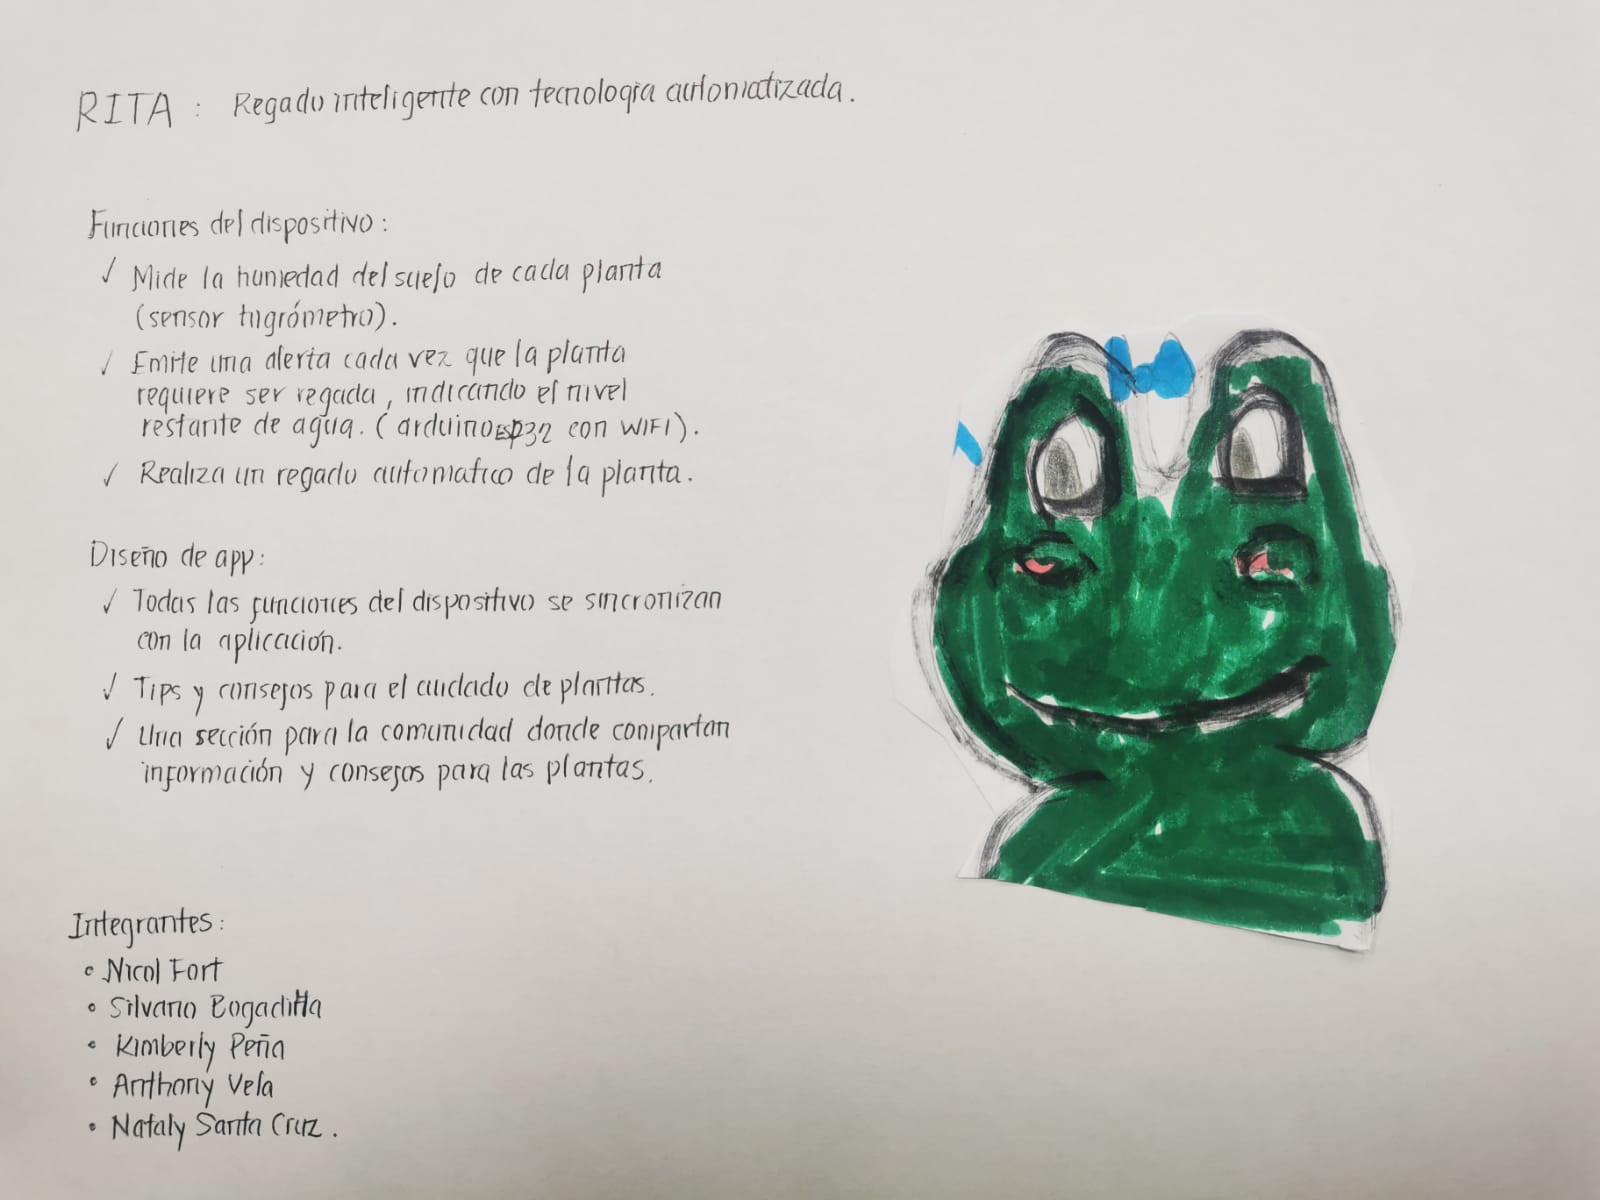 RITA : Regado inteligente con tecnologia automatizada.
Funciones del dispositivo :
✓ Mide la humedad del suelo de cada planta
(sensor higrómetro).
✓ Emite una alerta cada vez que la planta
requiere ser regada, indicando el nivel
restante de agua. (arduino ESP32 con WIFI).
✓ Realiza un regado automatico de la planta.
Diseño de app:
✓ Todas las funciones del dispositivo se sincronizan
con la aplicación.
✓ Tips y consejos para el cuidado de plantas.
✓ Una sección para la comunidad donde compartan
información y consejos para las plantas.
Integrantes:
• Nicol Fort
• Silvano Bogadilla
• Kimberly Peña
• Anthony Vela
• Nataly Santa Cruz.